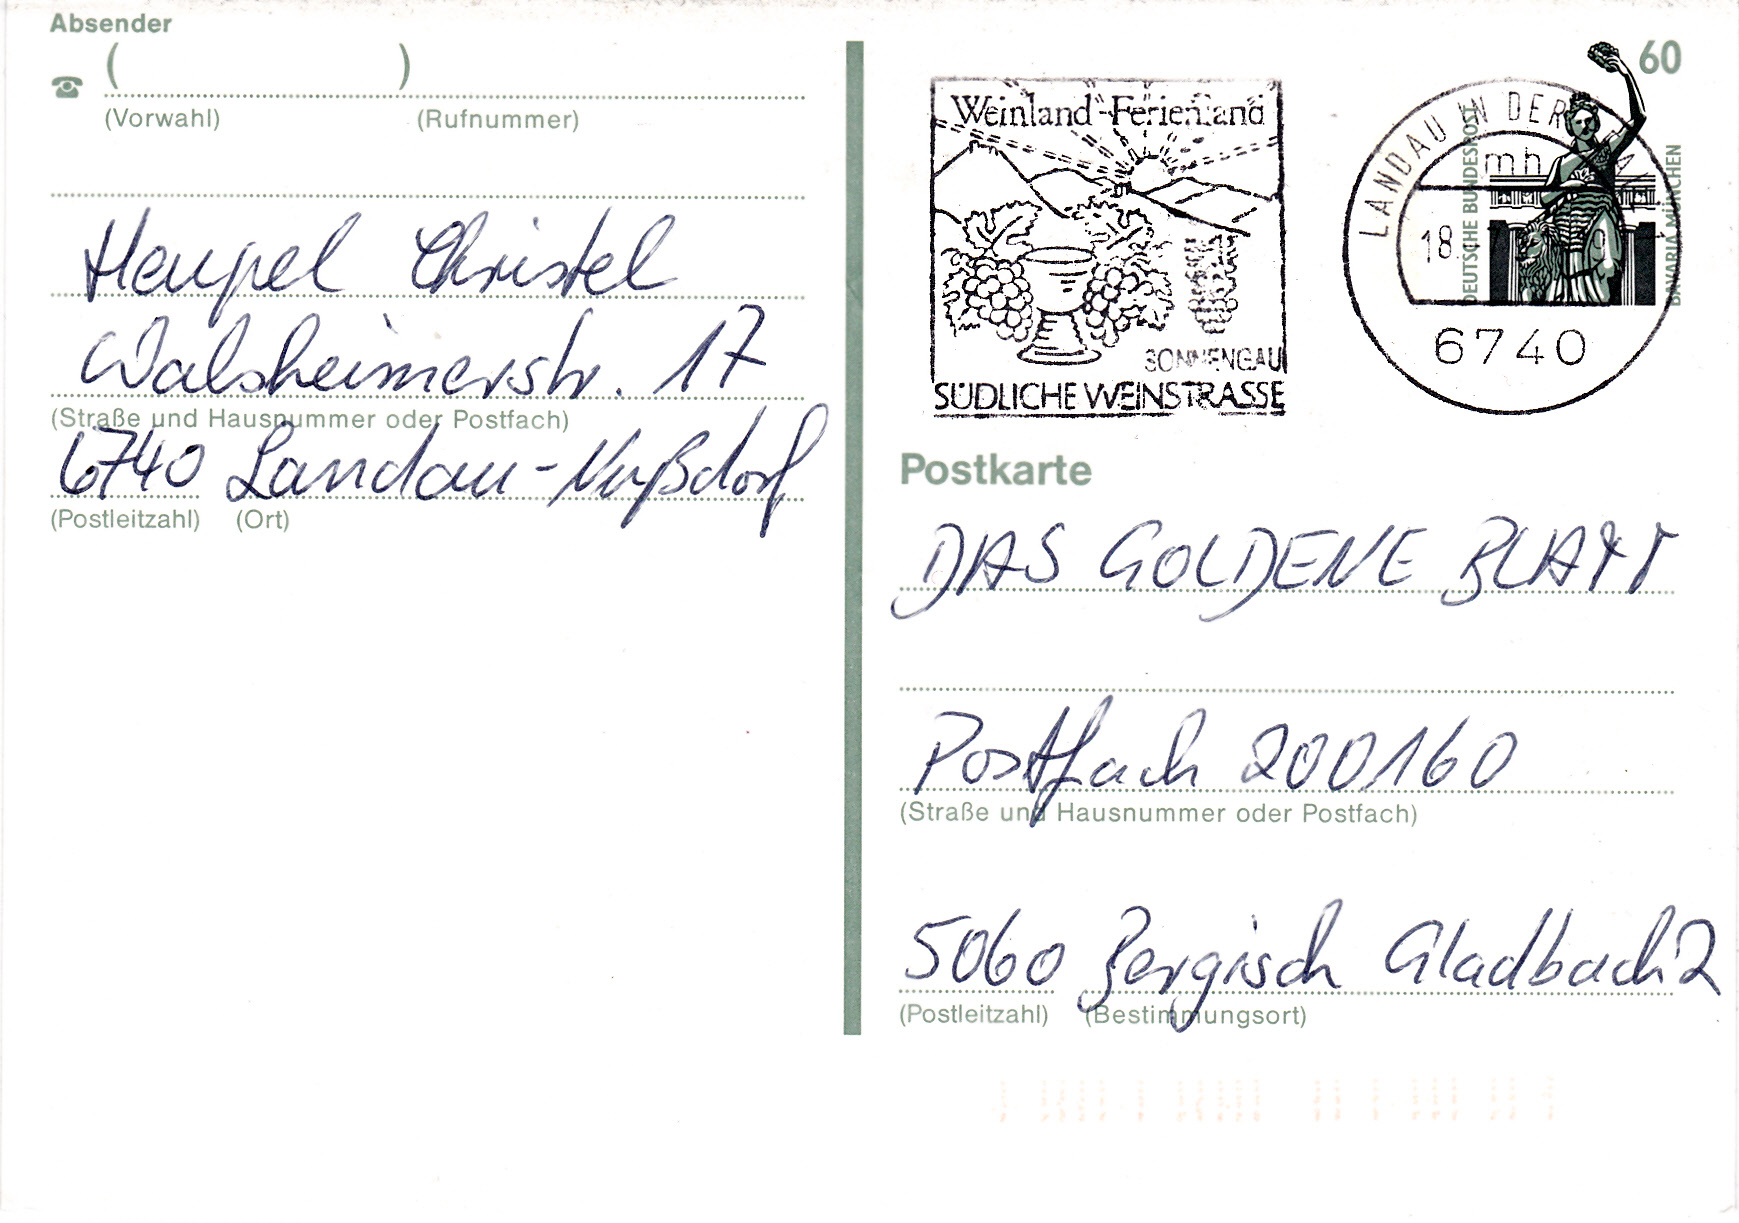 Absender
( )
(Vorwahl) (Rufnummer)
Hempel Christel
Walsheimerstr. 17
(Straße und Hausnummer oder Postfach)
6740 Landau-Nußdorf
(Postleitzahl) (Ort)
Weinland-Ferienland
SONNENGAU
SÜDLICHE WEINSTRASSE
LANDAU IN DER
mh
18.
6740
60
DEUTSCHE BUNDESPOST
BAVARIA MÜNCHEN
Postkarte
DAS GOLDENE BLATT
Postfach 200160
(Straße und Hausnummer oder Postfach)
5060 Bergisch Gladbach 2
(Postleitzahl) (Bestimmungsort)